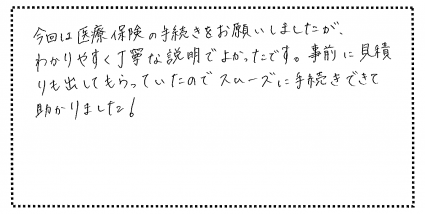 今回は医療保険の手続きをお願いしましたが、
わかりやすく丁寧な説明でよかったです。事前に見積
りも出してもらっていたのでスムーズに手続きできて
助かりました!